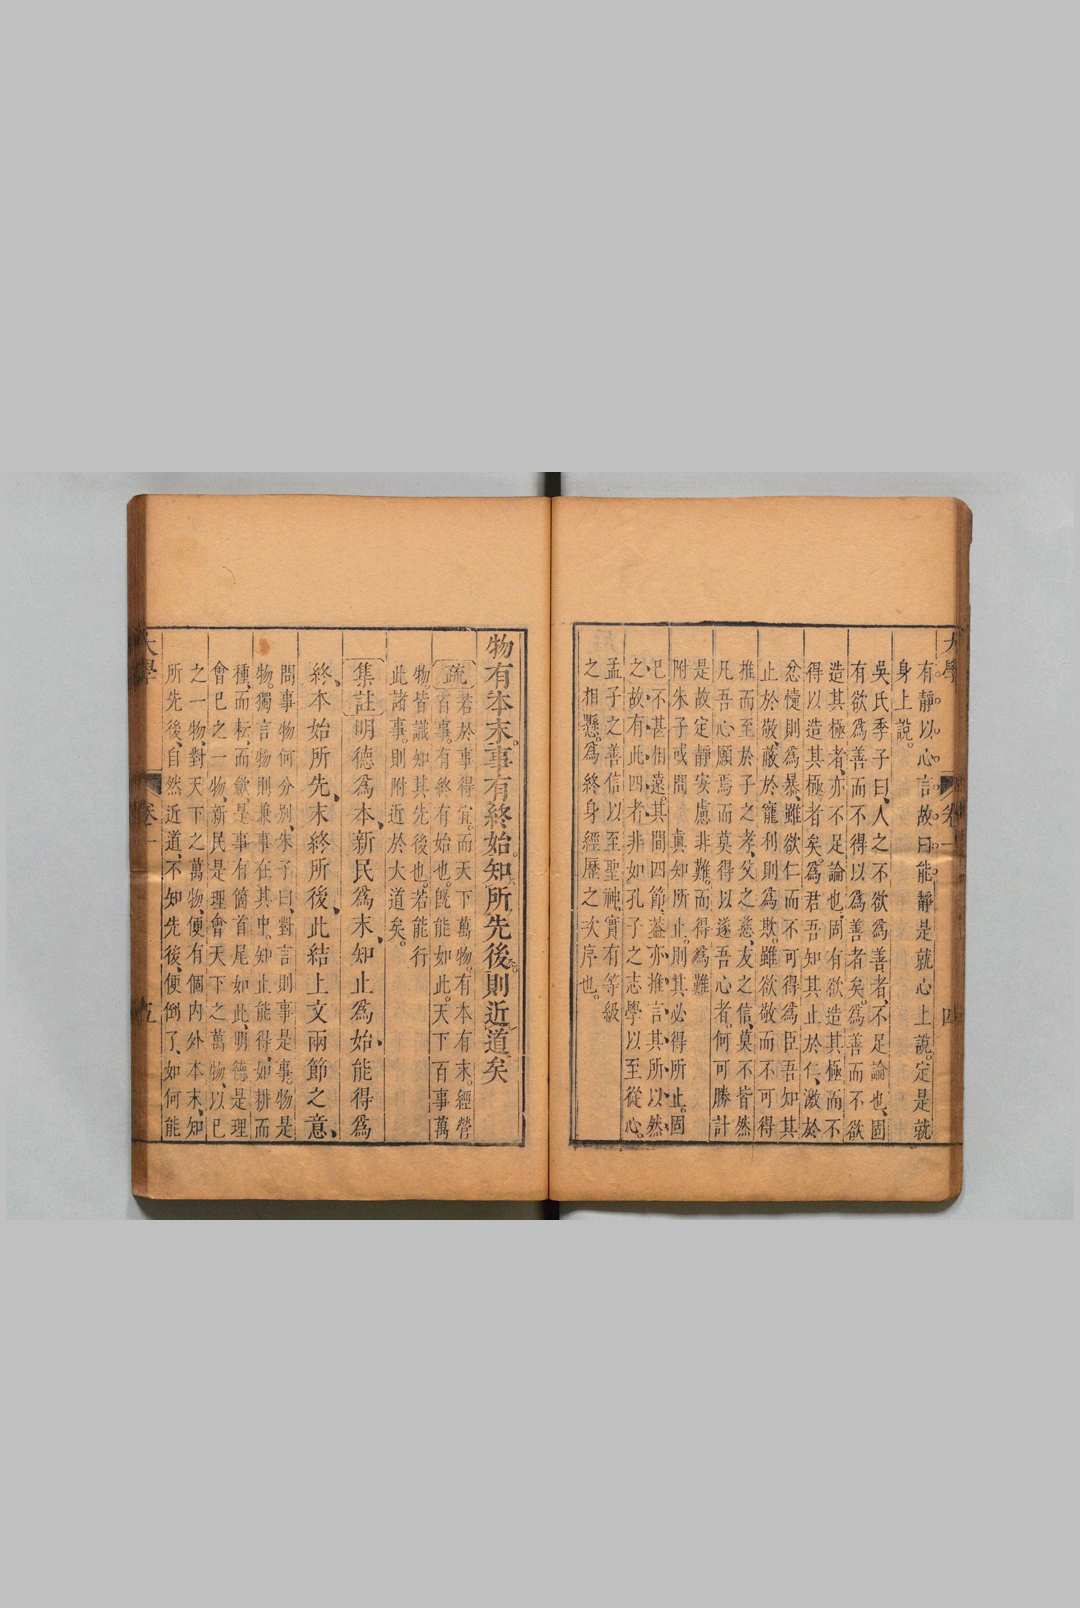 大學
卷一
四
有靜。以心言。故曰能靜。是就心上說。定是就
身上說。
吳氏季子曰、人之不欲爲善者、不足論也、固
有欲爲善而不得以爲善者矣。爲善而不欲
造其極者、亦不足論也、固有欲造其極而不
得以造其極者矣。爲君吾知其止於仁、激於
忿懥則爲暴、雖欲仁而不可得、爲臣吾知其
止於敬、蔽於寵利則爲欺。雖欲敬而不可得
推而至於子之孝、父之慈、友之信、莫不皆然
凡吾心願焉而莫得以遂吾心者。何可勝計
是故定靜安慮非難。而得爲難
附朱子或問 眞知所止。則其必得所止。固
已不甚相遠。其間四節、蓋亦推言其所以然
之故、有此四者、非如孔子之志學以至從心。
孟子之善信以至聖神。實有等級
之相懸。爲終身經歷之次序也。
物有本末。事有終始。知所先後。則近道矣
疏 若於事得宜。而天下萬物。有本有末。經營
百事。有終有始也。旣能如此。天下百事萬
物皆識知其先後也。若能行
此諸事。則附近於大道矣。
集註 明德爲本、新民爲末、知止爲始、能得爲
終、本始所先、末終所後、此結上文兩節之意、
問事物何分別、朱子曰、對言則事是事。物是
物。獨言物則兼事在其中、知止能得、如耕而
種、而耘、而歛、是事有箇首尾如此、明德是理
會己之一物、新民是理會天下之萬物、以己
之一物、對天下之萬物、便有個內外本末、知
所先後、自然近道、不知先後、便倒了、如何能
大學
卷一
五